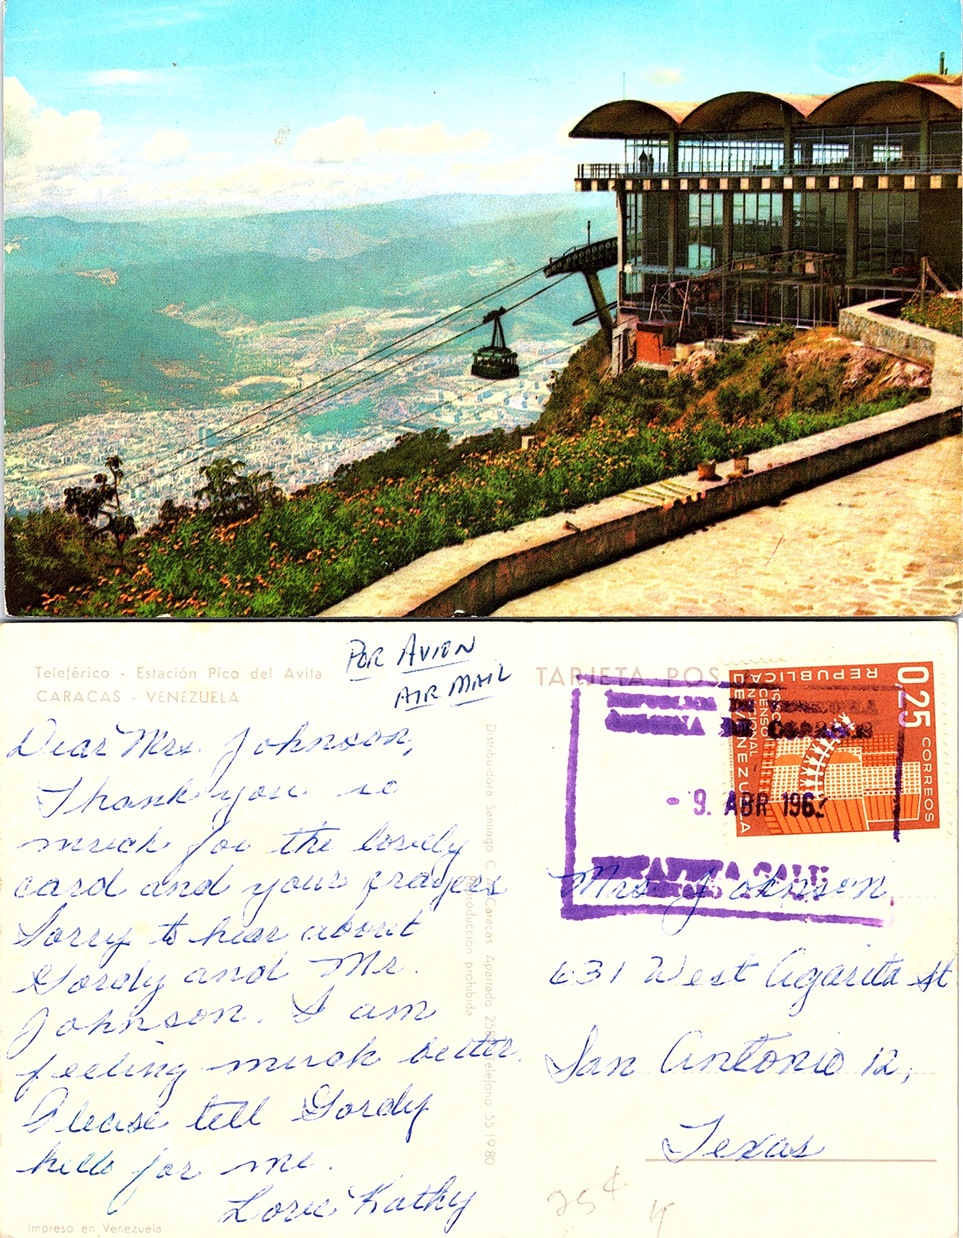 Teleférico - Estación Pico del Avila
CARACAS - VENEZUELA
POR AVION
AIR MAIL
Dear Mrs. Johnson,
Thank you so
much for the lovely
card and your prayers
Sorry to hear about
Gordy and Mr.
Johnson. I am
feeling much better.
Please tell Gordy
hello for me.
Love Kathy
Impreso en Venezuela
Distribuidora Santiago C. Caracas Apartado Telefono 55.19.80
producción prohibida
TARJETA POS
REPUBLICA
DE VENEZUELA
0,25
CORREOS
DE VENEZUELA
DE CORREOS
- 9. ABR 196
Mrs Johnson
631 West Agarita St
San Antonio 12,
Texas
25¢